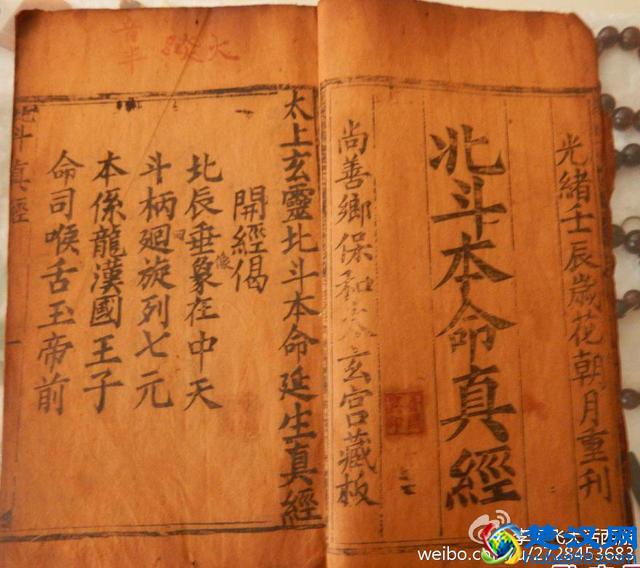 光緒壬辰歲花朝月重刊
北斗本命真經
尚善鄉保和太玄宮藏板
太上玄靈北斗本命延生真經
開經偈
北辰垂象在中天
像
斗柄廻旋列七元
本係龍漢國王子
命司喉舌玉帝前
北斗真經
weibo.com/u/2728453683